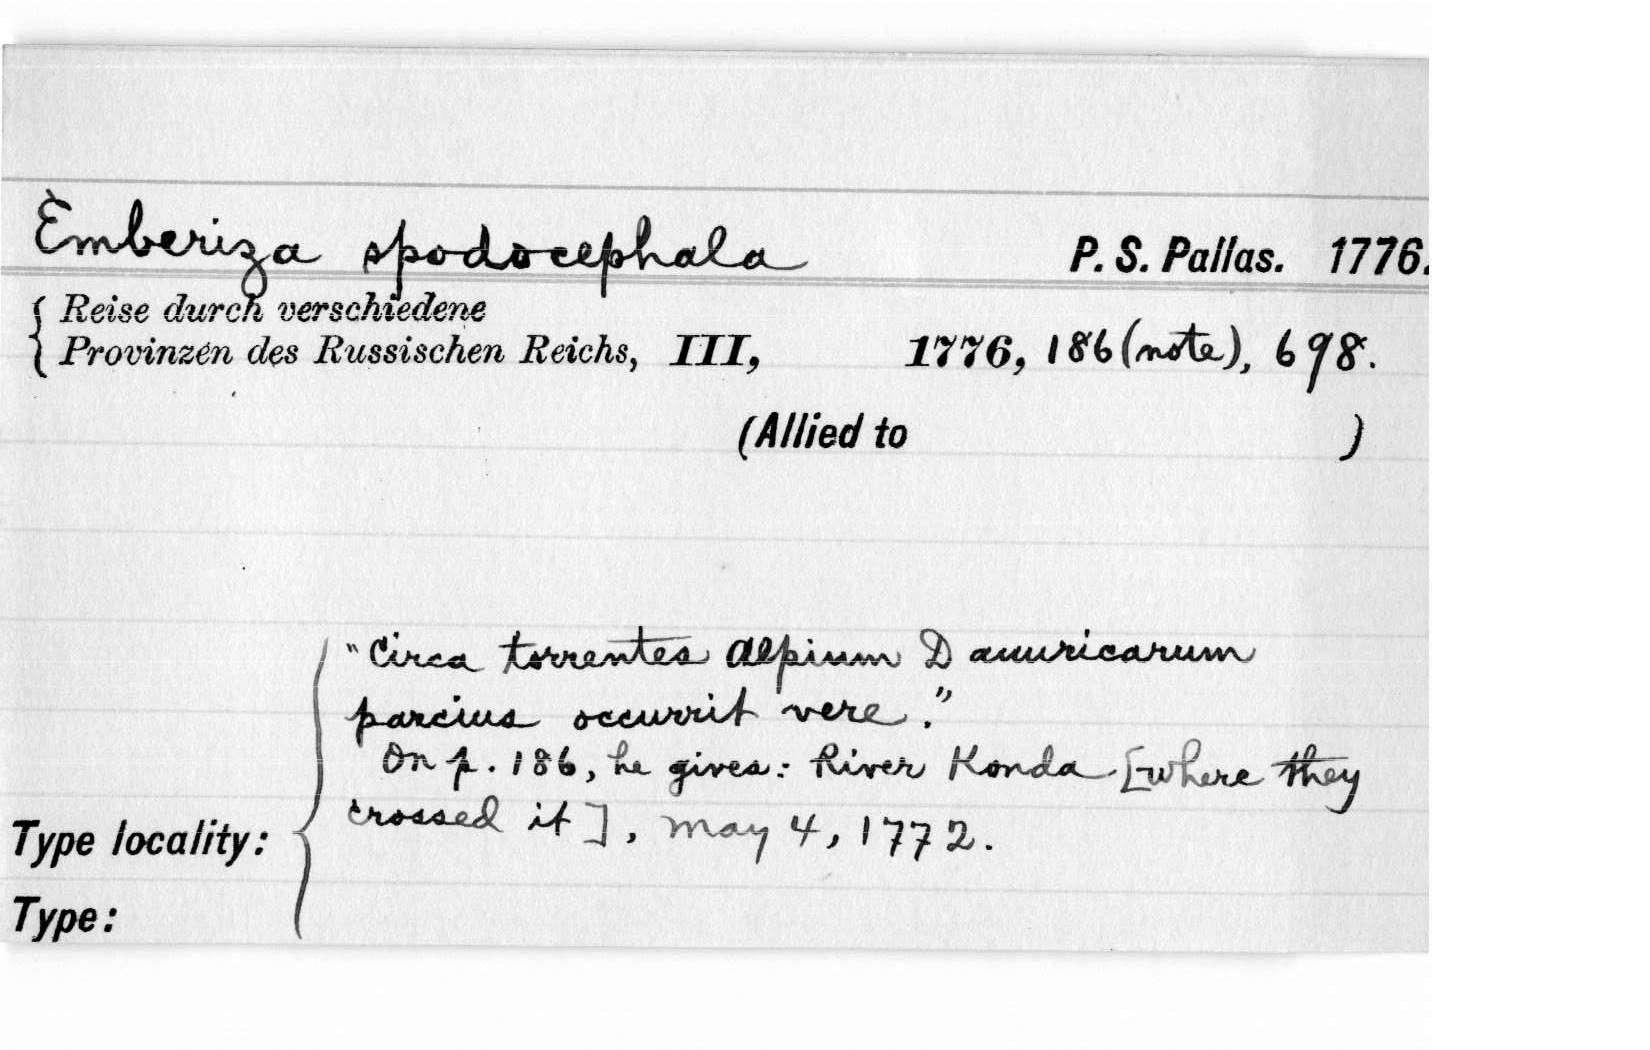 Emberiza spodocephala P. S. Pallas. 1776.
{ Reise durch verschiedene
Provinzen des Russischen Reichs, III, 1776, 186 (note), 698.
(Allied to )
"Circa torrentes Alpium Dauuricarum
parcius occurrit vere."
On p. 186, he gives: River Konda [where they
crossed it], May 4, 1772.
Type locality:
Type: